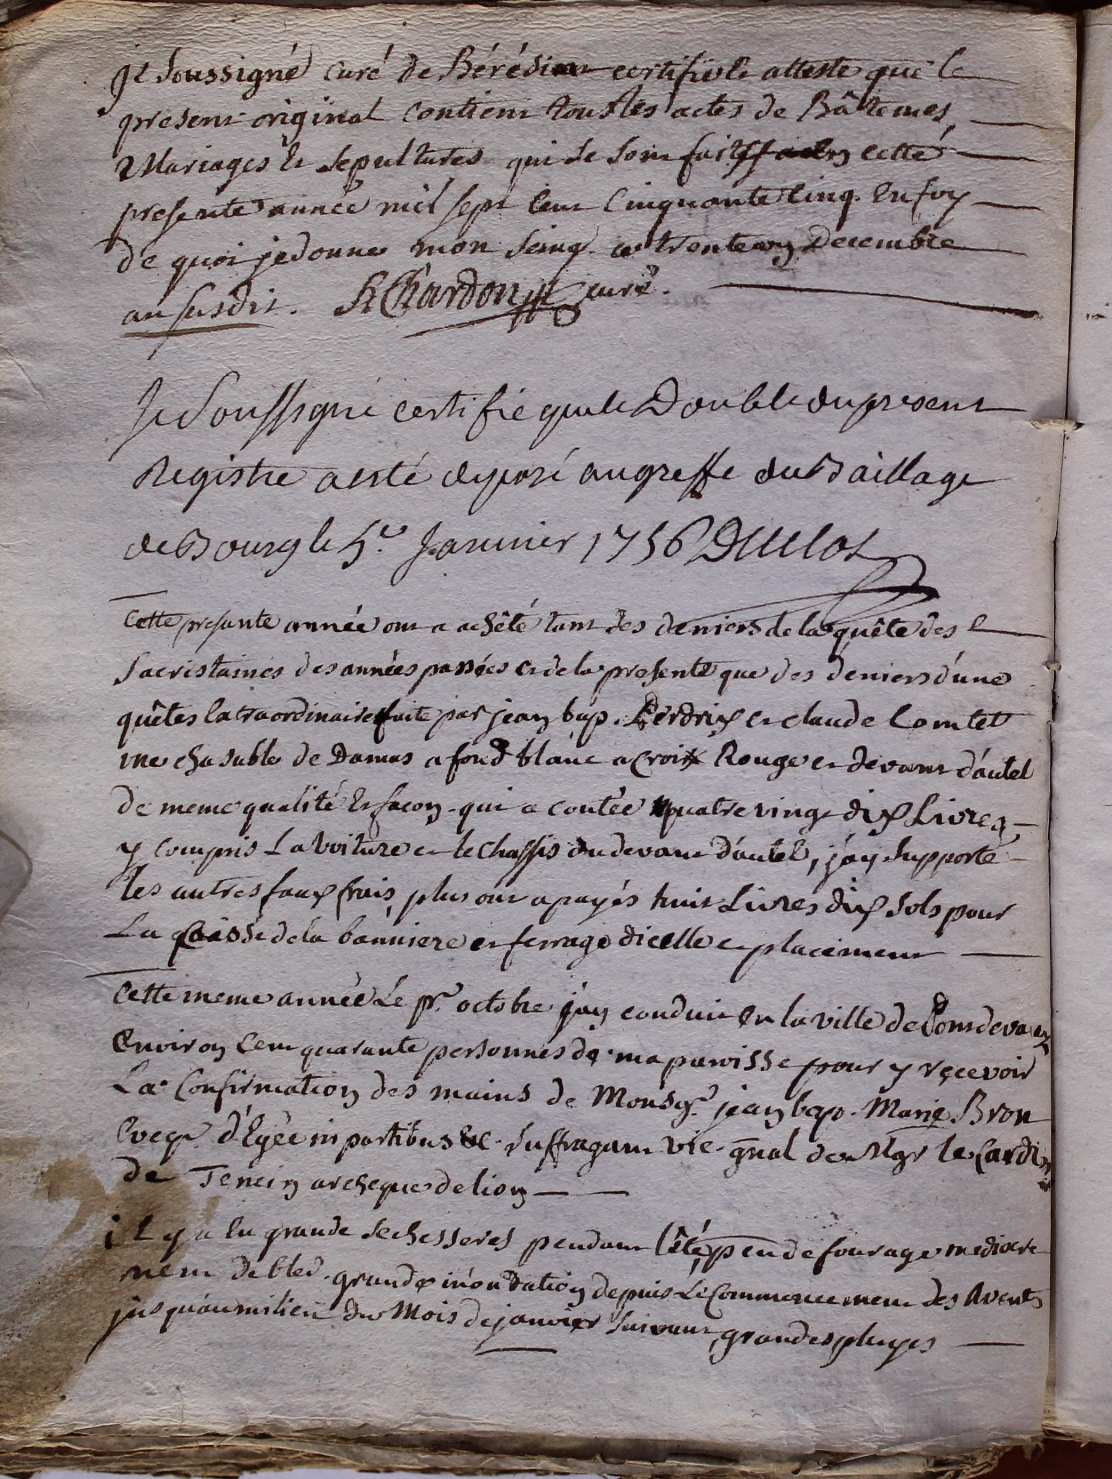 Je soussigné curé de Bérésiat certifie et atteste que le
present original contient tous les actes de Bâtemes,
Mariages et sepultures qui se sont faits en cette
presente année mil sept cent cinquante cinq. En foy
de quoi je donne mon seing ce trente un Decembre
an susdit. Chardon curé.
Je soussigné certifie que le Double du present
Registre a esté deposé au greffe du Baillage
de Bourg le 5e. Janvier 1756 Duclos
Cette presante année on a achêté tant des deniers de la quête des
sacristaines des années passées et de la presente que des deniers d'une
quêtes Extraordinaire faite par jean bap. Perdrix et claude Comtet
une chasuble de Damas a fond blanc a croix Rouge et devant d'autel
de meme qualité Et façon qui a coutée quatre vingt dix Livres,
y compris La voiture et le chassis du devant d'autel, j'ay supporté
les autres faux frais, plus on a payés huit Livres dix sols pour
La caisse de la banniere et ferrage d'icelle et placement
Cette meme année Le pr. octobre j'ay conduit en la ville de Pontdevaux
Environ cent quarante personnes de ma paroisse pour y recevoir
La Confirmation des mains de Monsgr. jean bap. Marie Bron
Eveque d'Egée in partibus suffragant vic. gnal de Mgr le Cardinal
de Tencin archeque de lion
il y a Eu grande sechesseres pendant l'été, peu de fourage mediocre
ment de bled. grande inondation depuis Le Commencement des Avents
jusqu'au milieu du Mois de janvier suivant, grandes pluyes